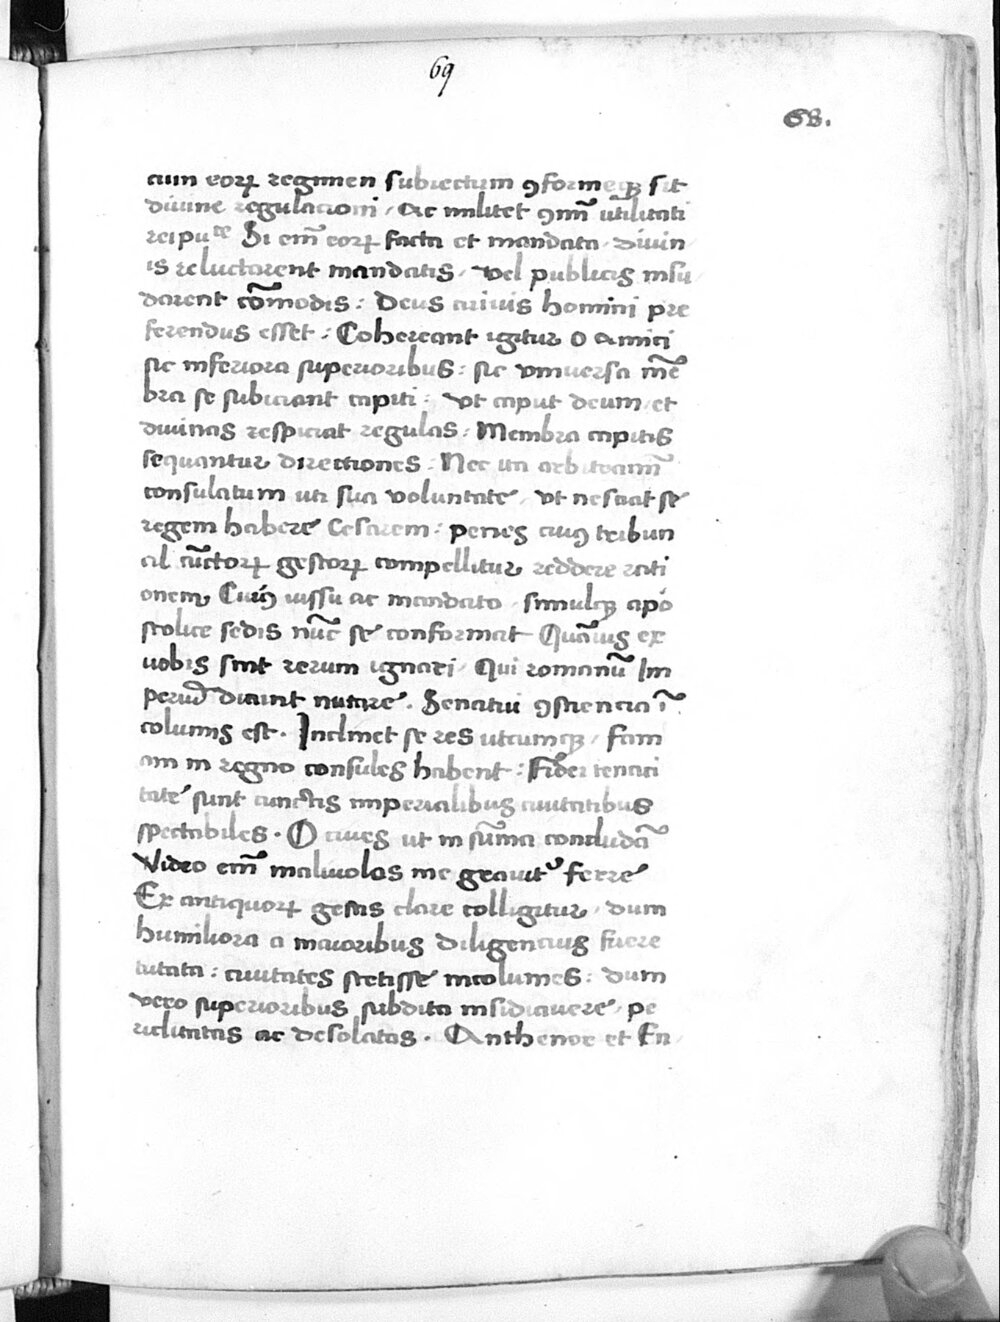 69
68.
cum eorꝝ regimen subiectum ꝯformeqꝫ sit
diuine regulacioni / Ac militet ꝯmī utilitati
reipuᶜᵉ Si em̄ eorꝝ facta et mandata / diuin
is reluctarent mandatis / vel publicis insu
darent cōmodis : Deus ciuis homini pre
ferendus esset : Cohereant igitur o amici
sic inferiora superioribus : sic vniuersa mē
bra se subiciant capiti : vt caput deum et
diuinas respiciat regulas : Membra capitis
sequantur directiones : Nec ita
consulatum uti sua voluntate / vt nesciat se
regem habere Cesarem : penes cuiꝯ tribun
al cūctorꝝ gestorꝝ compellitur reddere rati
onem, Cuiꝯ iussu ac mandato / simulqꝫ apo
stolice sedis nūc se conformat Quāuis ex
uobis sint rerum ignari / Qui romanū Im
periū dicunt nutare . Senatui ꝯscientia ī
columis est . Inclinet se res utcumqꝫ / fam
am in regno consules habent : Fidei tenaci
tate sunt cunctis imperialibus ciuitatibus
spectabiles . O ciues ut in sūma concludā
Video em̄ maliuolos me grauitͬ ferre
Ex antiquorꝝ gestis clare colligitur / dum
humiliora a maioribus diligencius fuere
tutata : ciuitates stetisse incolumes : dum
vero superioribus subdita insidiauere / pe
riclitatas ac desolatas . Anthenor et En